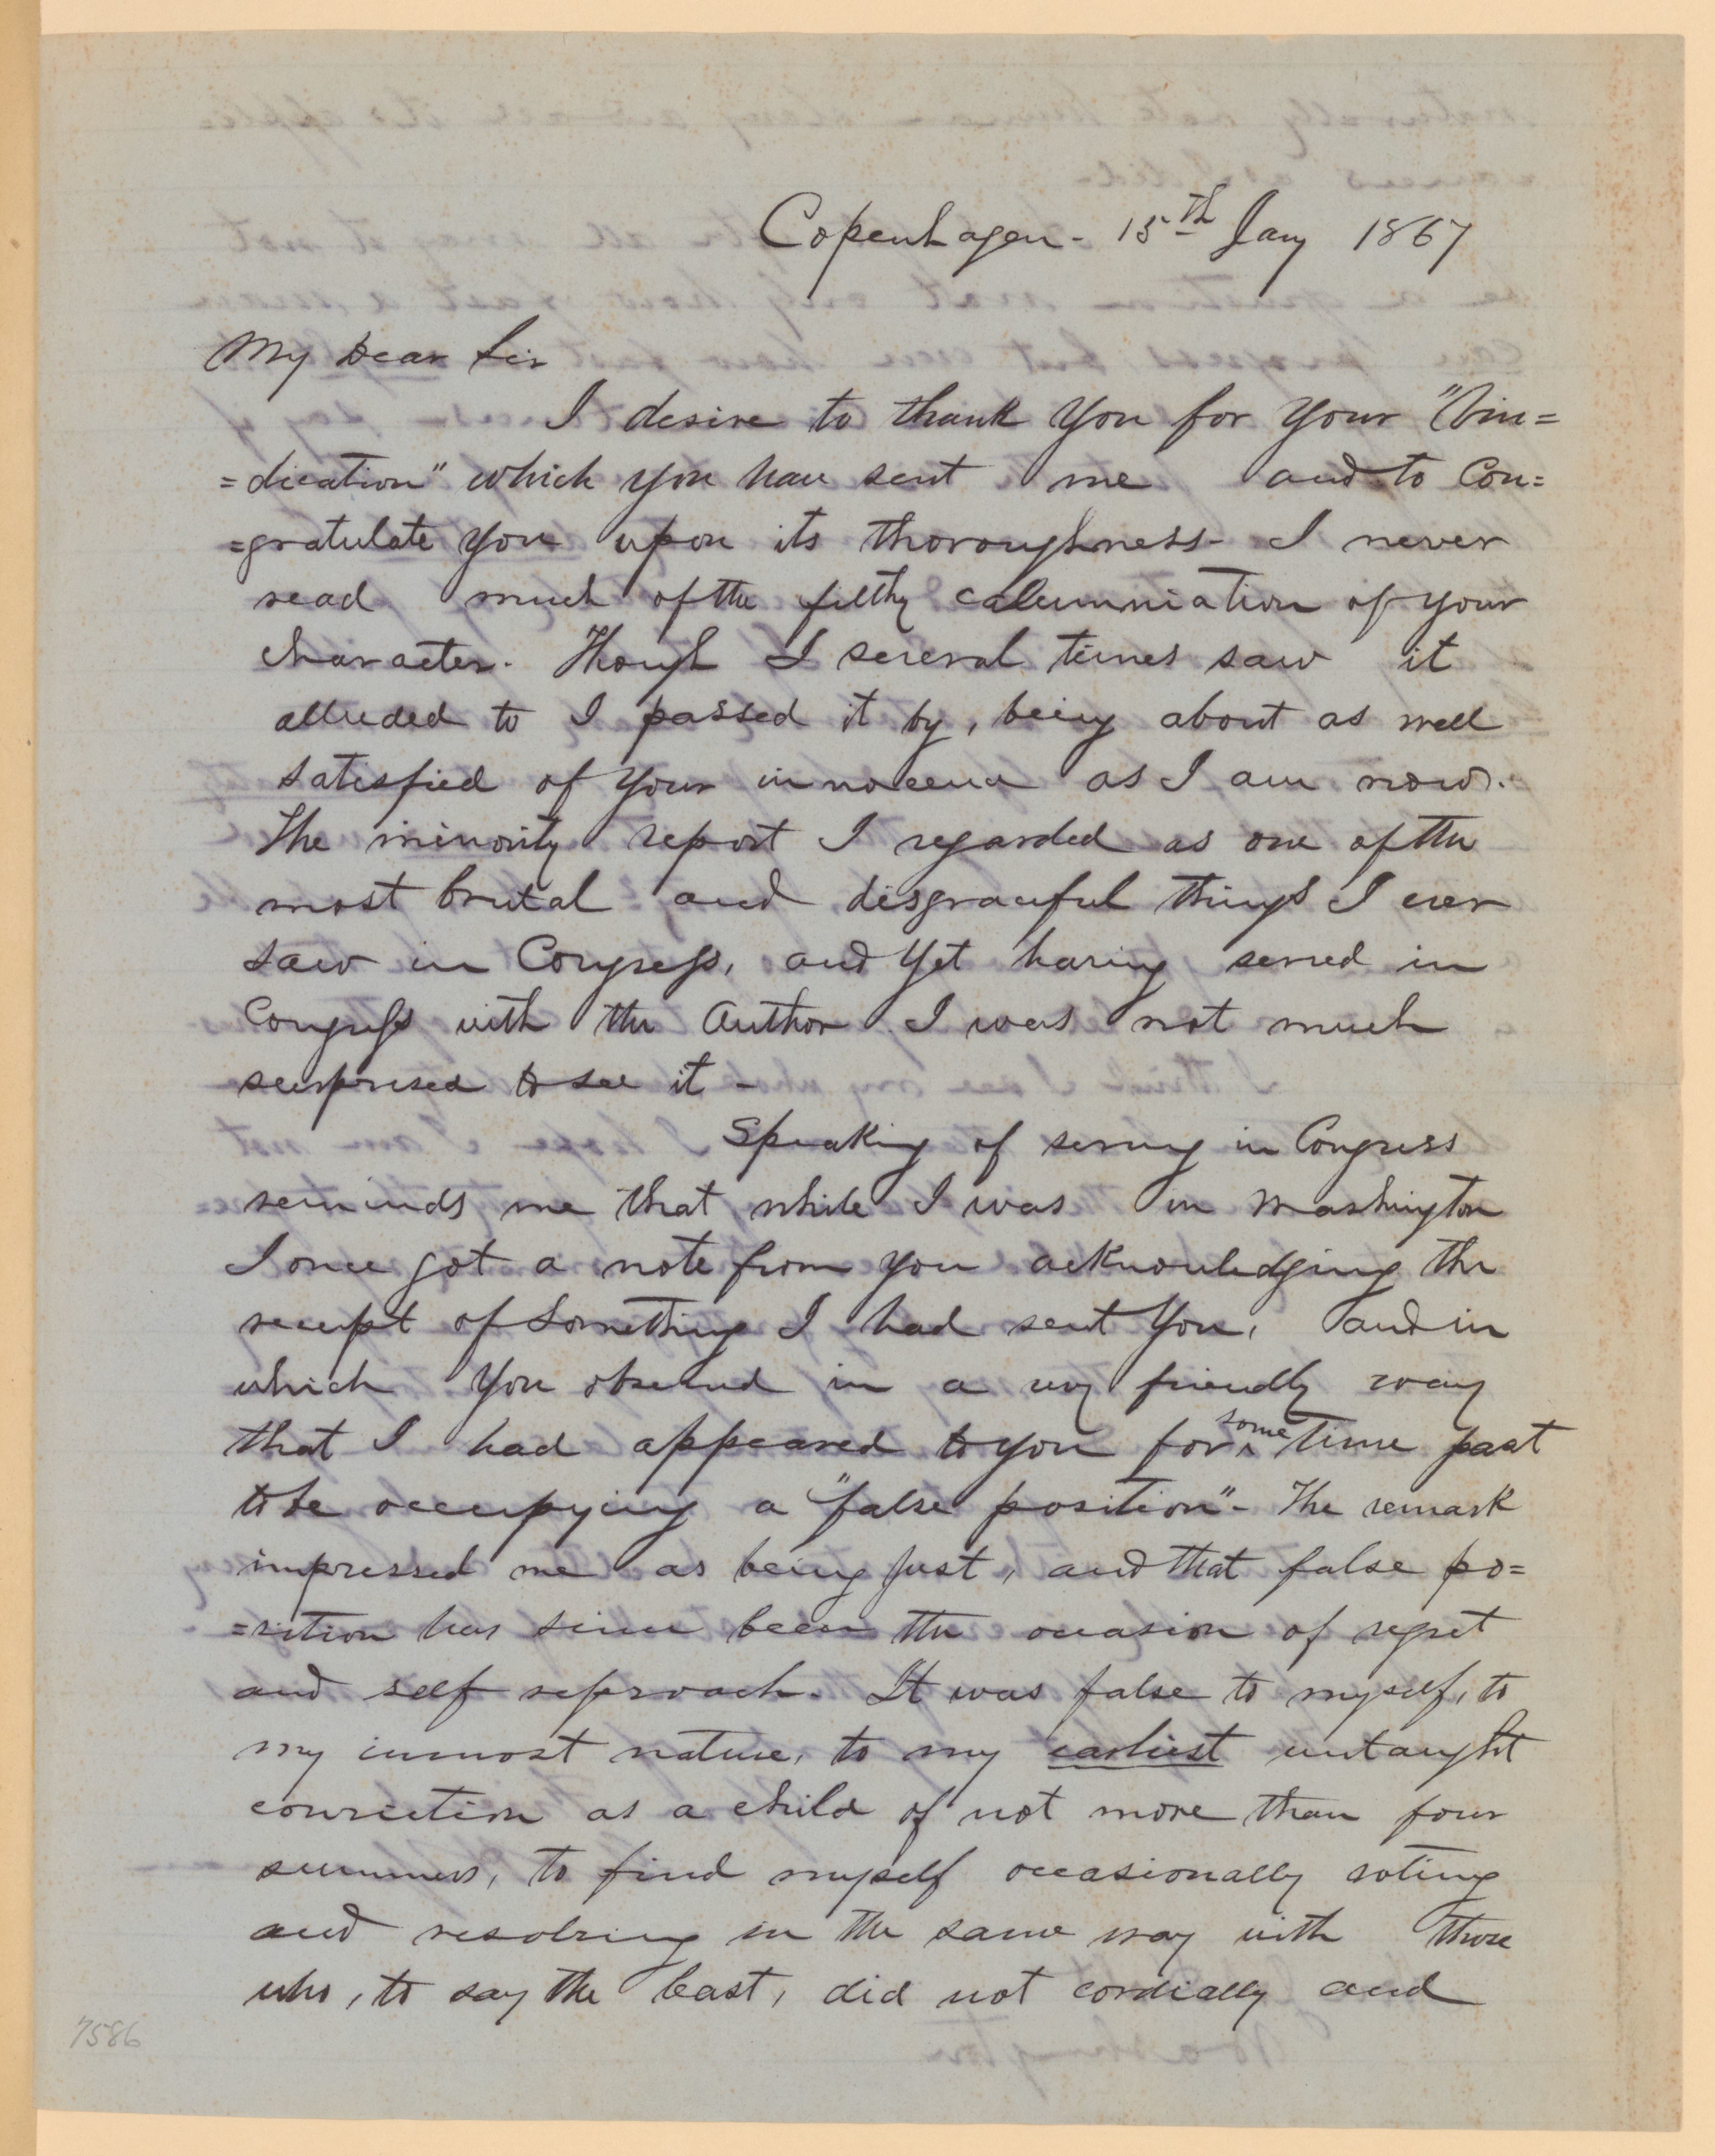 Copenhagen - 15th Jany 1867
My Dear Sir
I desire to thank you for your "Vin=
=dication" which you have sent me and to Con=
=gratulate you upon its thoroughness - I never
read much of the filthy calumniation of your
character. Though I several times saw it
alluded to I passed it by, being about as well
satisfied of your innocence as I am now.
The minority report I regarded as one of the
most brutal and disgraceful things I ever
saw in Congress, and yet having served in
Congress with the Author I was not much
surprised to see it -
Speaking of serving in Congress
reminds me that while I was in Washington
I once got a note from you acknowledging the
receipt of something I had sent you, and in
which you observed in a very friendly way
that I had appeared to you for some time past
to be occupying a "false position" - The remark
impressed me as being just, and that false po=
=sition has since been the occasion of regret
and self reproach. It was false to myself, to
my inmost nature, to my earliest untaught
conviction as a child of not more than four
summers, to find myself occasionally voting
and resolving in the same way with those
who, to say the least, did not cordially and
7586